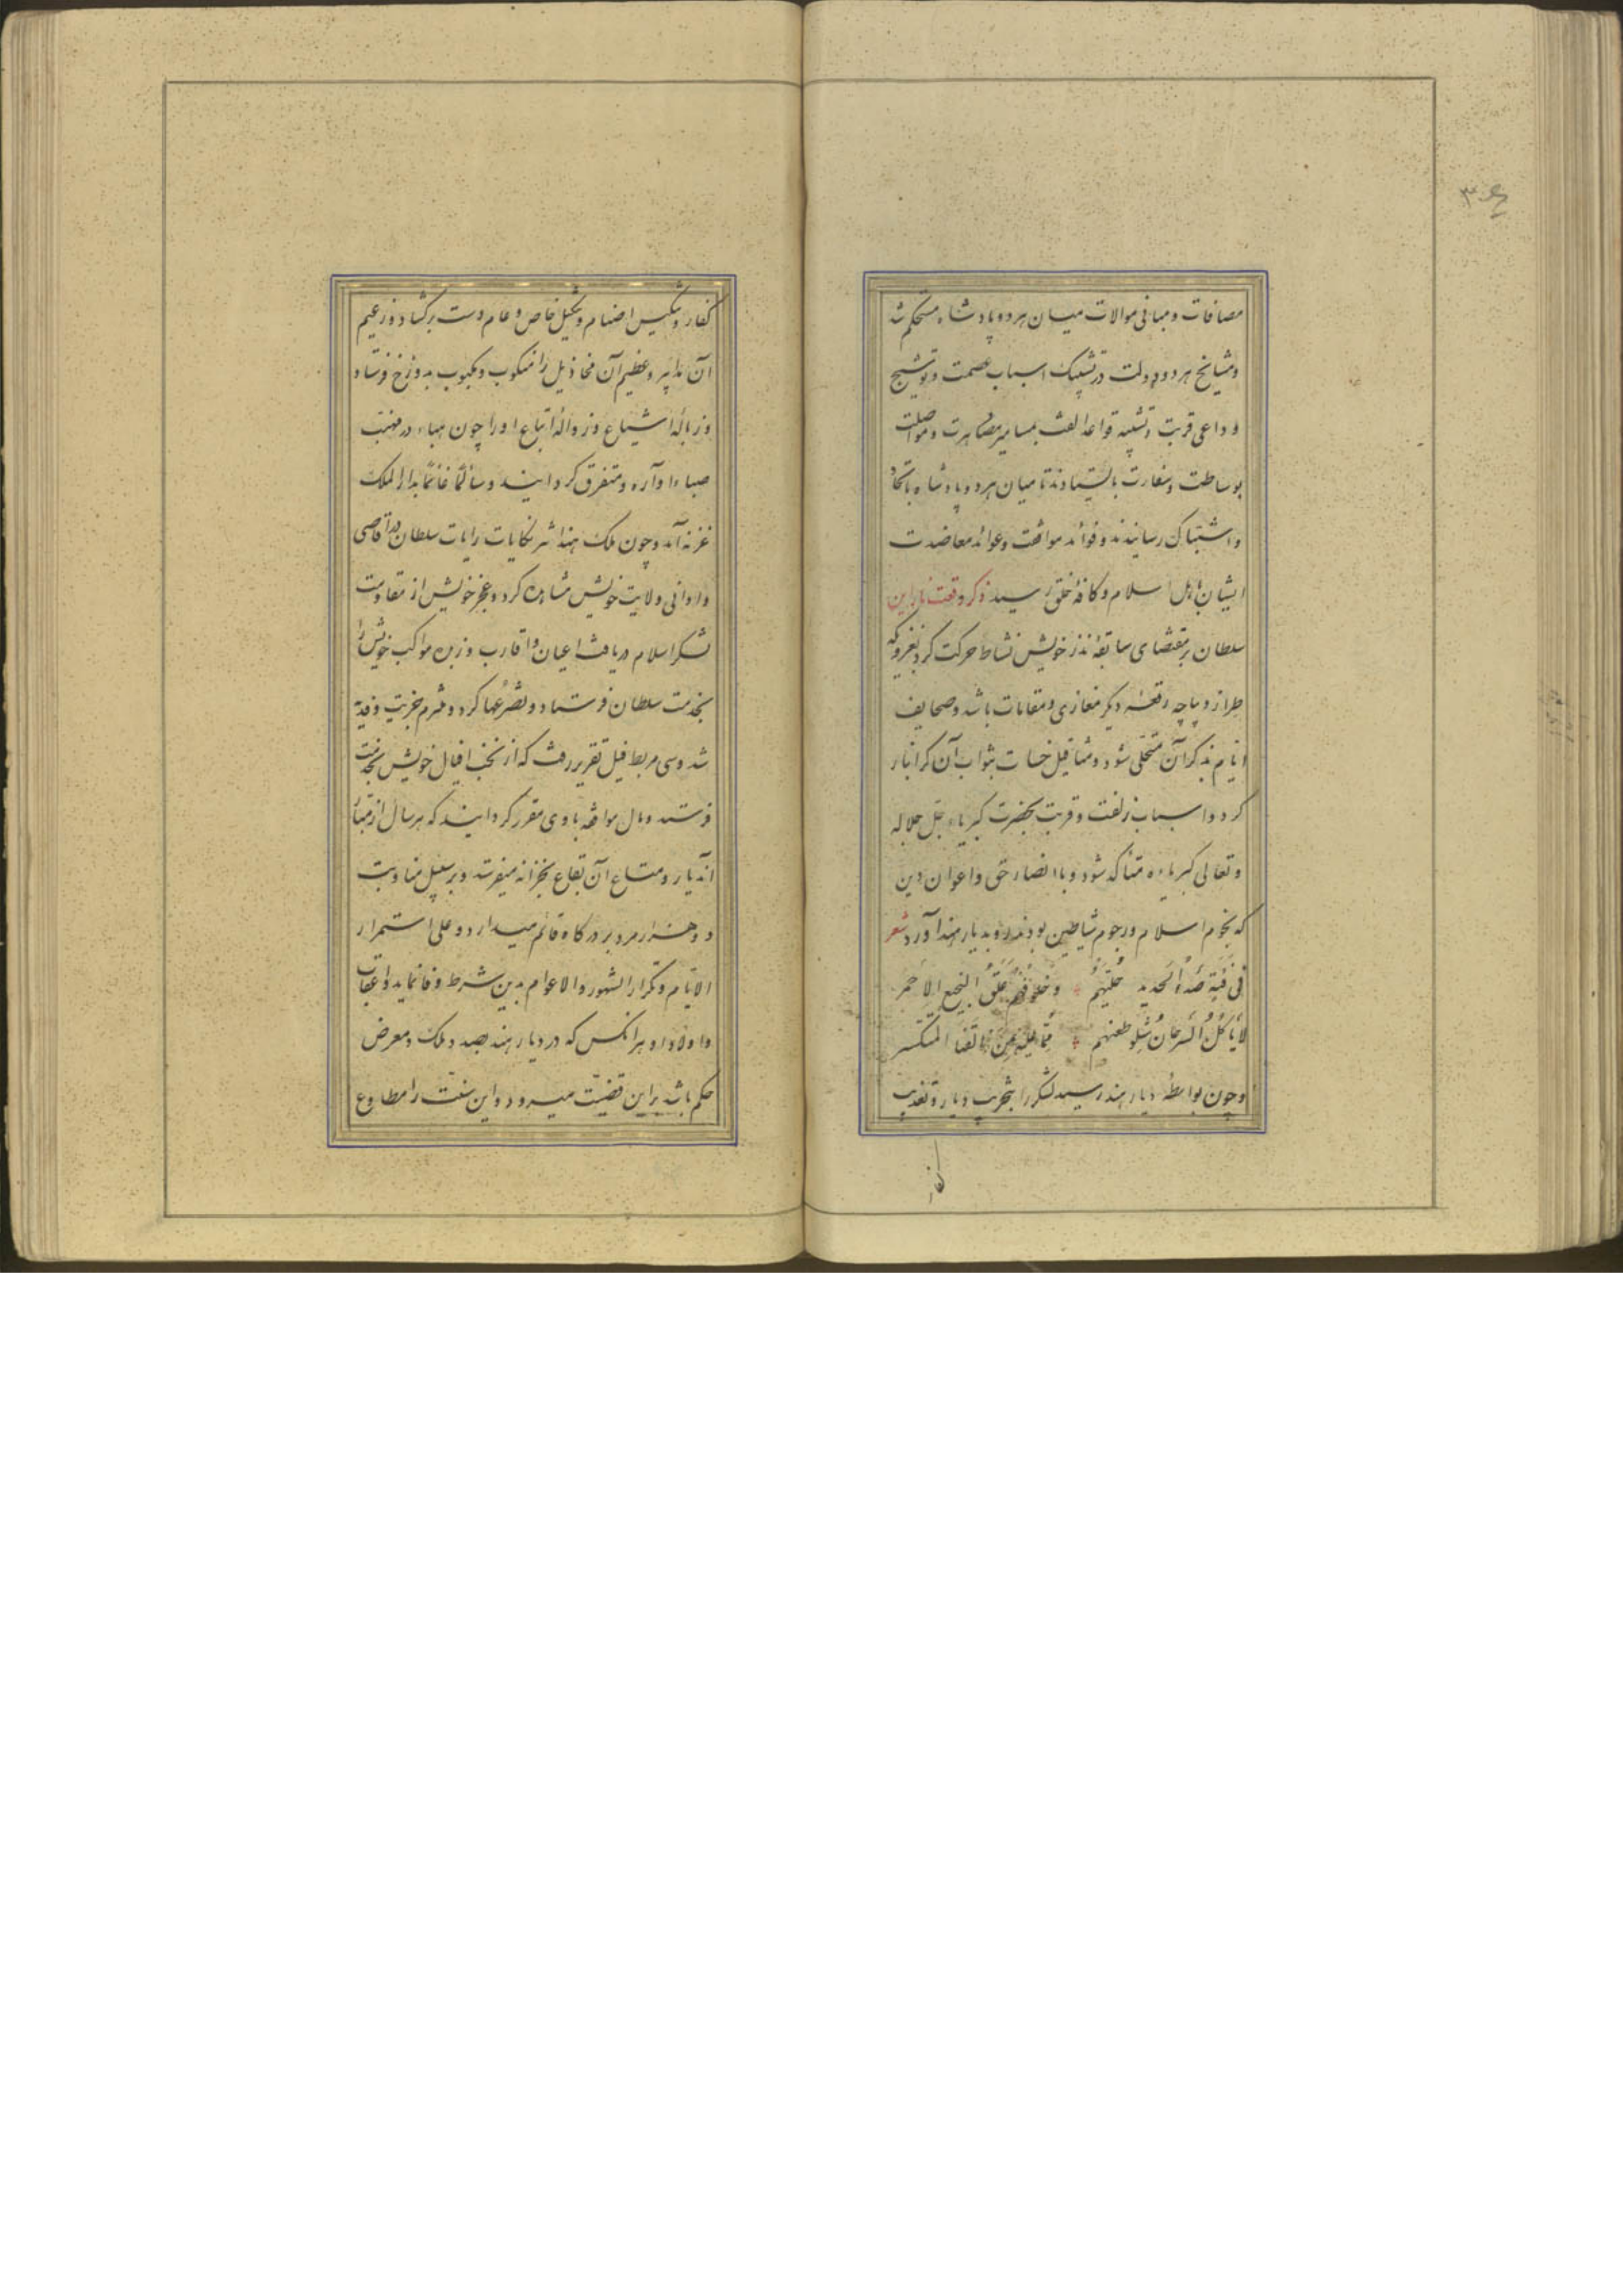 مصافات و مبانی موالات میان هر دو پادشاه مستحکم شد
و مشایخ هر دو دولت در تشبیک اسباب عصمت و توشیج
و داعی قربت و تشبیه قواعد الفت بمسامیر مصاهرت و مواصلت
بوساطت و سفارت بایستادند تا میان هر دو پادشاه باتحاد
و اشتباک رسانیدند و فوائد موافقت و عوائد معاضدت
ایشان باهل اسلام و کافه خلق رسید ذکر وقعت ناراین
سلطان بر مقتضای سابقه نذر خویش نشاط حرکت کرد بغزوی که
طراز دیباچه دیکر مغازی و مقامات باشد و صحایف
ایام بذکر آن متحلی شود و مثاقیل حسنات بثواب آن کرانبار
کردد و اسباب زلفت و قربت بحضرت کبریاء جل جلاله
و تعالی کبریاءه متاکد شود و با انصار حق و اعوان دین
که نجوم اسلام و رجوم شیاطین بودند رو بدیار هند آورد شعر
فی فتیة صدأ الحدید حلیهم و خلوقهم علق النجیع الاحمر
لا یاکل السرحان شلو طعنهم مما علیه من القنا المتکسر
و چون بواسطه دیار هند رسید لشکر را بتخریب دیار و تعذیب
کفار
کفار و تنکیس اصنام و تنکیل خاص و عام دست برکشاد و زعیم
آن مدابیر و عظیم آن مخاذیل را منکوب و مکبوب بدوزخ فرستاد
و زباله اشیاع و زواله اتباع او را چون هباء در مهب
صبا آواره و متفرق کردانید و سالما غانما بدار الملک
غزنه آمد و چون ملک هند اثر نکایات رایات سلطان در اقاصی
و ادانی ولایت خویش مشاهده کرد و عجز خویش از مقاومت
لشکر اسلام دریافت اعیان و اقارب و زبده مواکب خویش را
بخدمت سلطان فرستاد و تضرعها کرد و ملتزم جزیت و فدیه
شد و سی مربط فیل تقریر رفت که از نخب افیال خویش بخدمت
فرستد و مال مواقفه با وی مقرر کردانیدند که هر سال از
اندیار و متاع آن بقاع بخزانه میفرستد و بر سبیل مناوبت
دو هزار مرد بر درکاه قائم میدارد و علی استمرار
الایام و تکرار الشهور و الاعوام بدین شرط وفا نماید و اعقاب
و اولاد او و هر انکس که در دیار هند بصدد ملک و معرض
حکم باشد براین قضیت میرود و این سنت را مطاوع